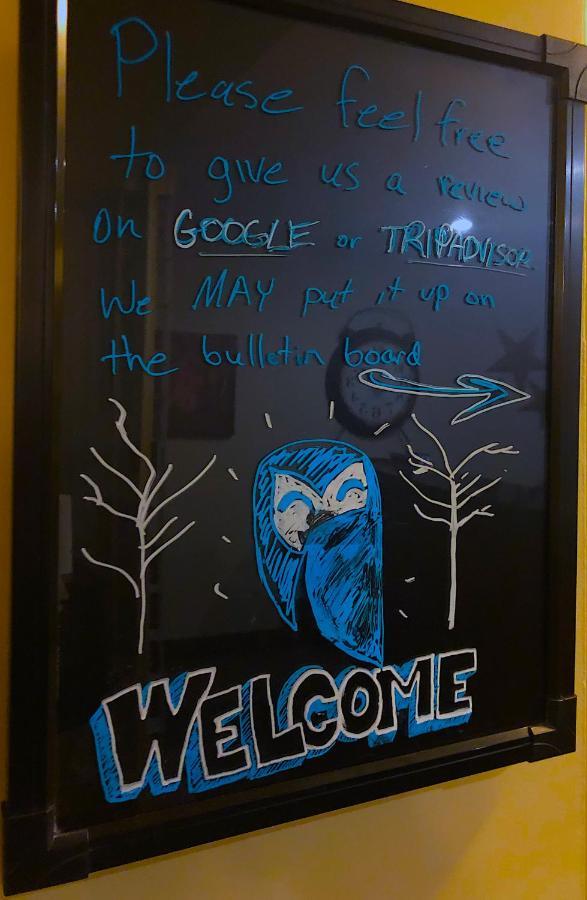 Please feel free
to give us a review
on GOOGLE or TRIPADVISOR
We MAY put it up on
the bulletin board
WELCOME